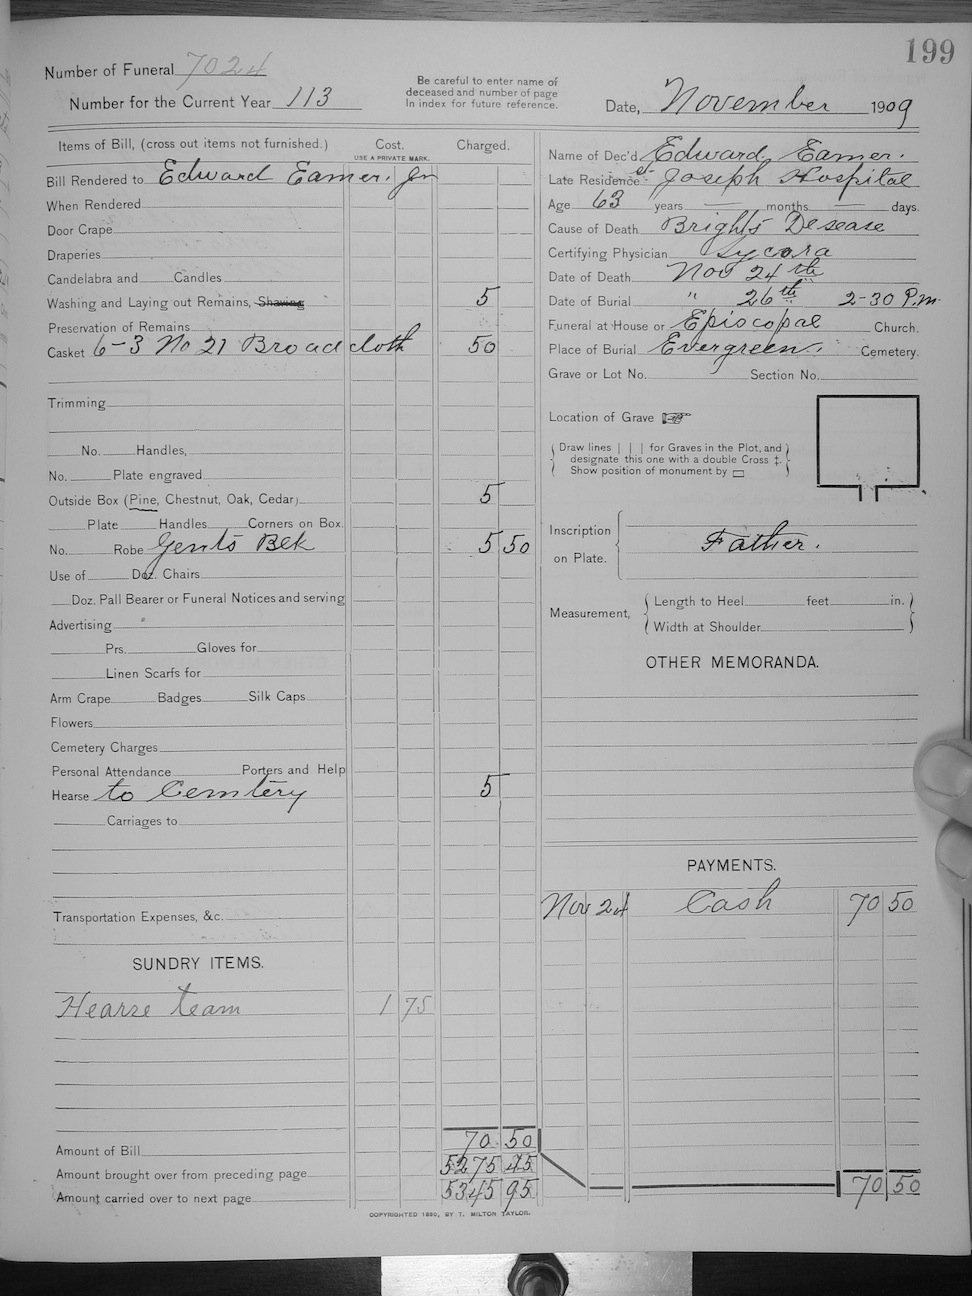 199
Number of Funeral 7024
Number for the Current Year 113
Be careful to enter name of
deceased and number of page
In index for future reference.
Date, November 1909
Items of Bill, (cross out items not furnished.) Cost. Charged.
USE A PRIVATE MARK.
Bill Rendered to Edward Eamer. Jr
When Rendered
Door Crape
Draperies
Candelabra and Candles
Washing and Laying out Remains, Shaving 5
Preservation of Remains
Casket 6-3 No 21 Broadcloth 50
Trimming
No. Handles,
No. Plate engraved
Outside Box (Pine, Chestnut, Oak, Cedar) 5
Plate Handles Corners on Box.
No. Robe Gents Blk 5 50
Use of Doz. Chairs
Doz. Pall Bearer or Funeral Notices and serving
Advertising
Prs. Gloves for
Linen Scarfs for
Arm Crape Badges Silk Caps
Flowers
Cemetery Charges
Personal Attendance Porters and Help
Hearse to Cemtery 5
Carriages to
Transportation Expenses, &c.
SUNDRY ITEMS.
Hearse team 1 75
Amount of Bill 70 50
Amount brought over from preceding page 5275 45
Amount carried over to next page 5345 95
Name of Dec'd Edward Eamer.
Late Residence St Joseph Hospital
Age 63 years — months — days.
Cause of Death Brights Desease
Certifying Physician Sycora
Date of Death Nov 24th
Date of Burial " 26th 2-30 P.m.
Funeral at House or Episcopal Church.
Place of Burial Evergreen. Cemetery.
Grave or Lot No. Section No.
Location of Grave
Draw lines | | | for Graves in the Plot, and
designate this one with a double Cross ‡.
Show position of monument by ▭
Inscription
on Plate. Father.
Measurement, Length to Heel feet in.
Width at Shoulder
OTHER MEMORANDA.
PAYMENTS.
Nov 24 Cash 70 50
70 50
COPYRIGHTED 1890, BY T. MILTON TAYLOR.